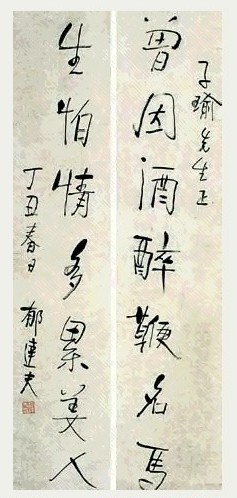 子瑜先生正
曾因酒醉鞭名馬
生怕情多累美人
丁丑春日 郁達夫